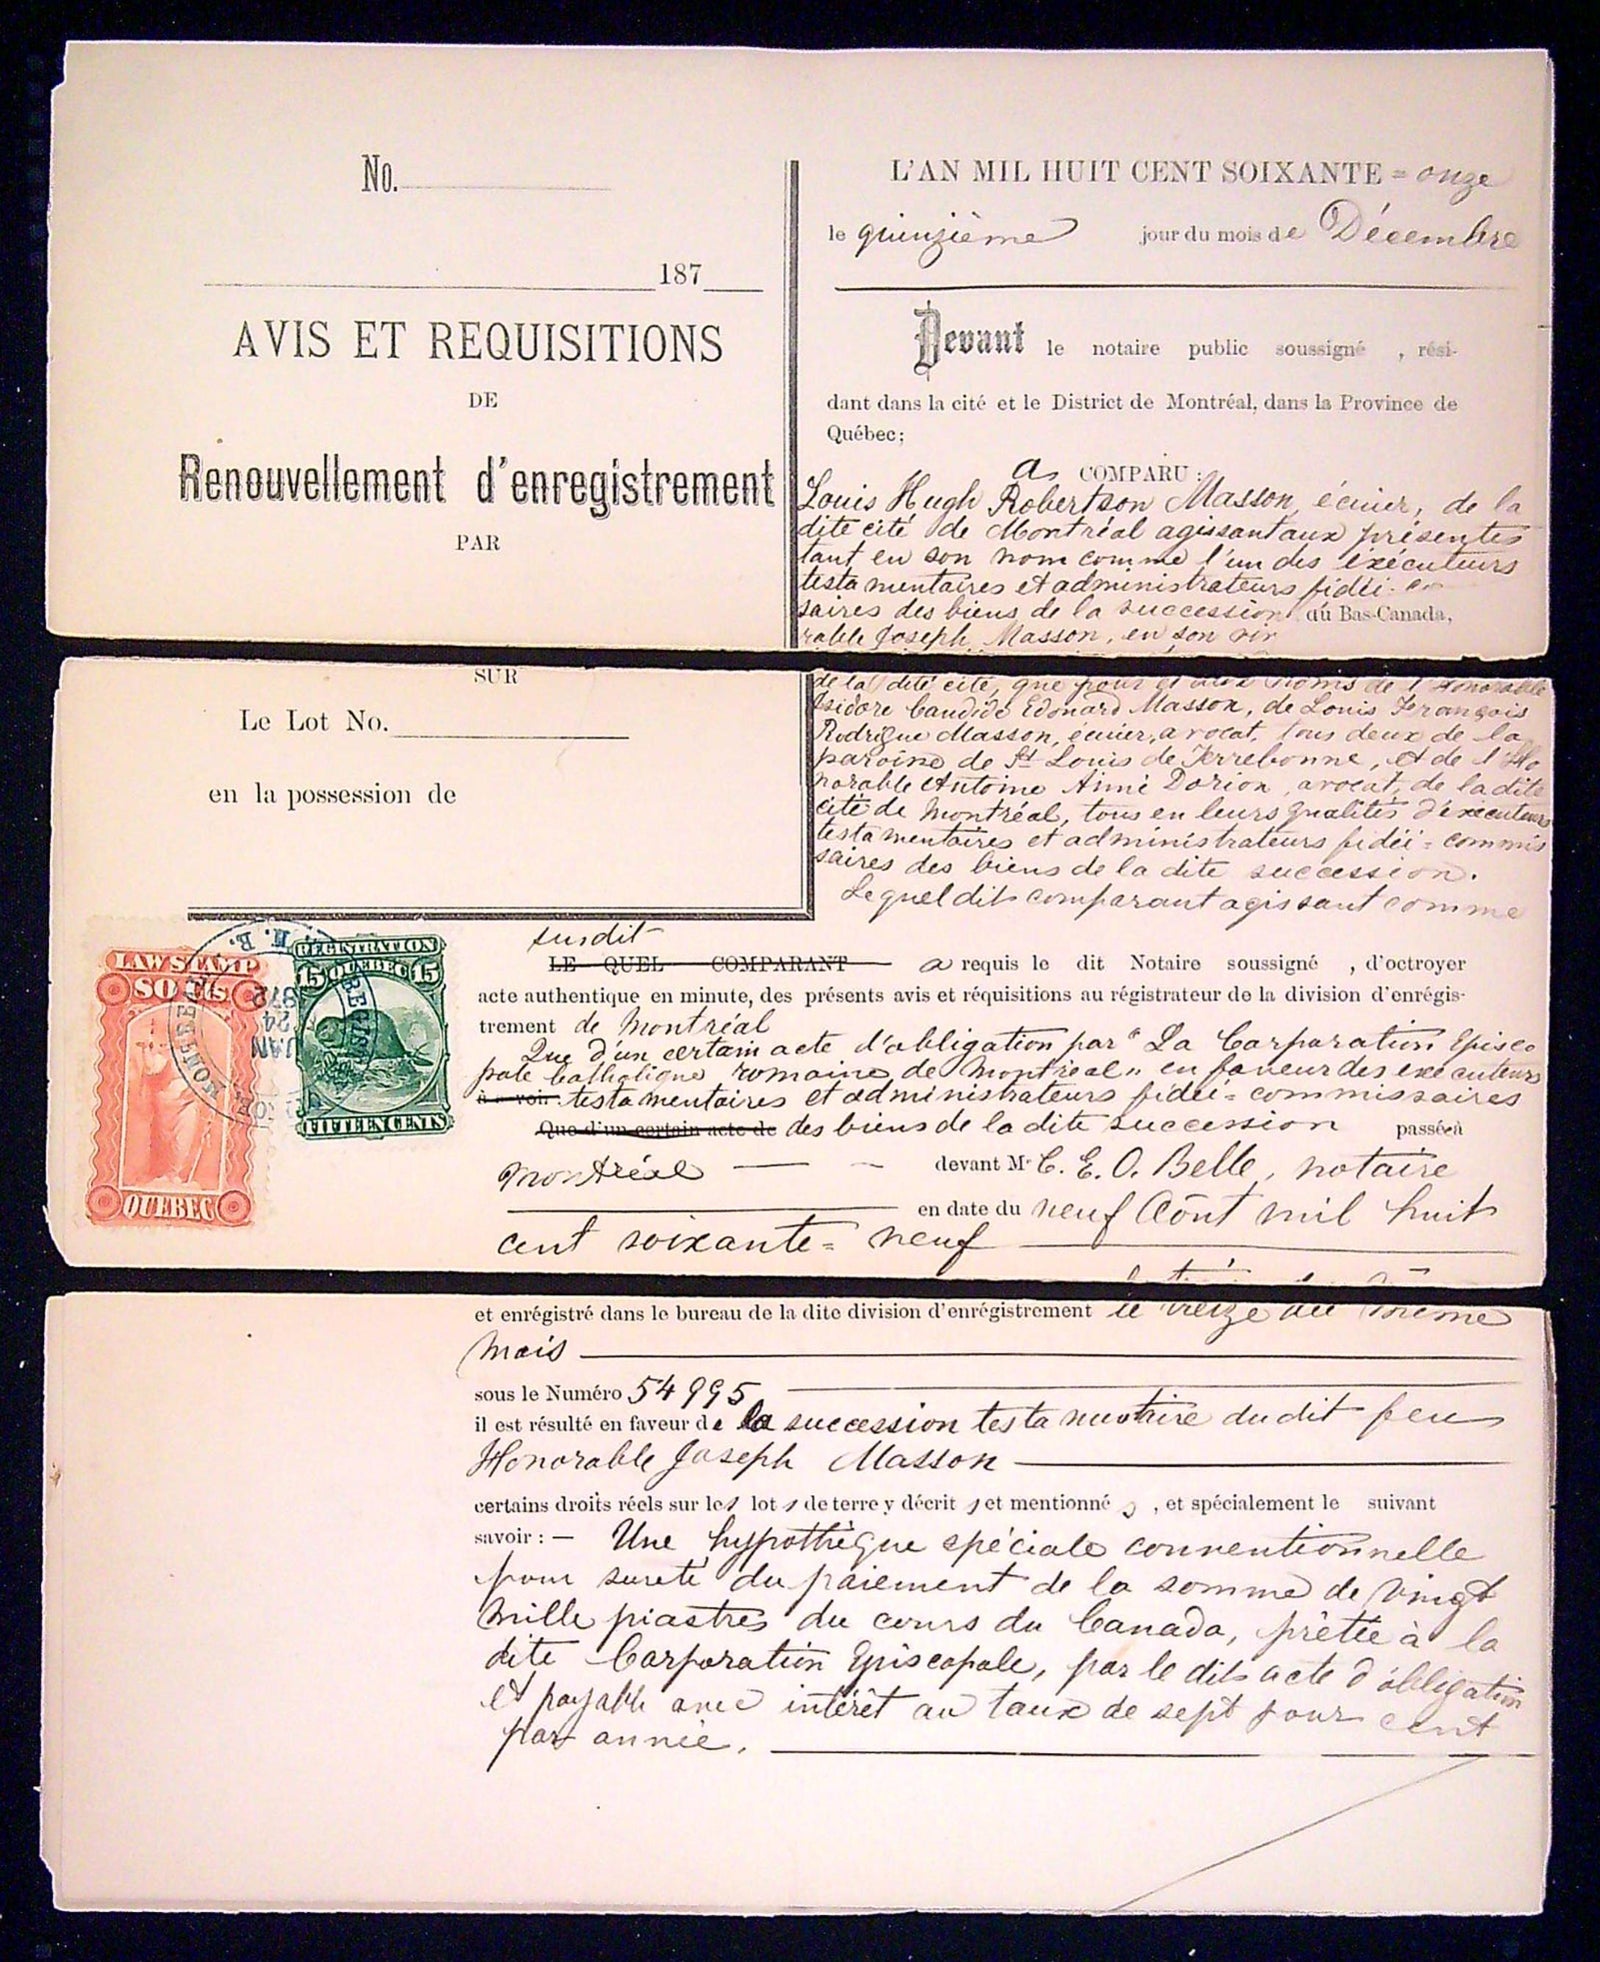 No.
187
AVIS ET REQUISITIONS
DE
Renouvellement d'enregistrement
PAR
L'AN MIL HUIT CENT SOIXANTE = onze
le quinzième jour du mois de Décembre
Devant le notaire public soussigné , rési-
dant dans la cité et le District de Montréal, dans la Province de
Québec;
a COMPARU :
Louis Hugh Robertson Masson, écuier, de la
dite cité de Montréal agissant aux présentes
tant en son nom comme l'un des exécuteurs
testamentaires et administrateurs fidéi-
saires des biens de la succession du Bas-Canada,
rable Joseph Masson, en son
SUR
Le Lot No.
en la possession de
de la dite cité, que pour et aux noms de l'Honorable
Isidore Candide Edouard Masson, de Louis François
Rodrigue Masson, écuier, avocat, tous deux de la
paroisse de St Louis de Terrebonne, et de l'Ho
norable Antoine Aimé Dorion, avocat, de la dite
cité de Montréal, tous en leurs qualités d'exécuteurs
testamentaires et administrateurs fidéi=commis
saires des biens de la dite succession.
Lequel dit comparant agissant comme
susdit
LE QUEL COMPARANT a requis le dit Notaire soussigné , d'octroyer
acte authentique en minute, des présents avis et réquisitions au régistrateur de la division d'enrégis-
trement de Montréal
Que d'un certain acte d'obligation par "La Corporation Episco
pale Catholique romaine de Montréal" en faveur des exécuteurs
à savoir: testamentaires et administrateurs fidéi=commissaires
Que d'un certain acte de des biens de la dite succession passé à
Montréal devant Mr C. E. O. Belle, notaire
en date du neuf Août mil huit
cent soixante=neuf
LAW STAMP
50 Cts
QUEBEC
REGISTRATION
15 QUEBEC 15
FIFTEEN CENTS
JAN
24
1872
et enrégistré dans le bureau de la dite division d'enrégistrement le treize du même
mois
sous le Numéro 54995
il est résulté en faveur de la succession testamentaire du dit feu
Honorable Joseph Masson
certains droits réels sur les lots de terre y décrits et mentionnés , et spécialement le suivant
savoir : — Une hypothèque spéciale conventionnelle
pour sureté du paiement de la somme de vingt
mille piastres du cours du Canada, prêtée à la
dite Corporation Episcopale, par le dit acte d'obligation
et payable avec intérêt au taux de sept pour cent
par année.